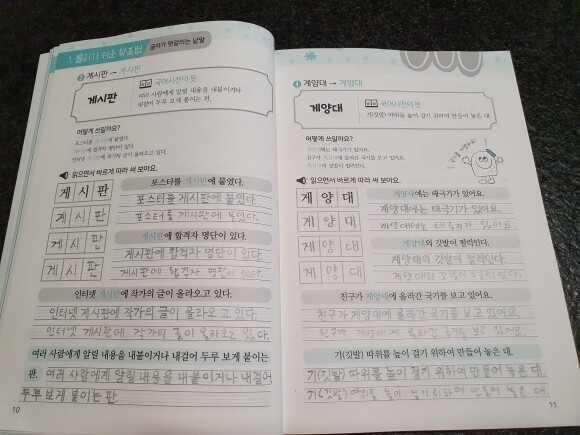 1. 틀리기 쉬운 맞춤법 글자가 헷갈리는 낱말
3 게시판 → 게시판
게시판
국어사전의 뜻
여러 사람에게 알릴 내용을 내붙이거나
내걸어 두루 보게 붙이는 판.
어떻게 쓰일까요?
포스터를 게시판에 붙였다.
게시판에 합격자 명단이 있다.
인터넷 게시판에 작가의 글이 올라오고 있다.
읽으면서 바르게 따라 써 보아요.
게 시 판
게 시 판
게 시 판
게 시 판
포스터를 게시판에 붙였다.
포스터를 게시판에 붙였다.
포스터를 게시판에 붙였다.
게시판에 합격자 명단이 있다.
게시판에 합격자 명단이 있다.
게시판에 합격자 명단이 있다.
인터넷 게시판에 작가의 글이 올라오고 있다.
인터넷 게시판에 작가의 글이 올라오고 있다.
인터넷 게시판에 작가의 글이 올라오고 있다.
여러 사람에게 알릴 내용을 내붙이거나 내걸어 두루 보게 붙이는
판. 여러 사람에게 알릴 내용을 내붙이거나 내걸어
두루 보게 붙이는 판.
10
4 게양대 → 게양대
게양대
국어사전의 뜻
기(깃발) 따위를 높이 걸기 위하여 만들어 놓은 대.
어떻게 쓰일까요?
게양대에는 태극기가 있어요.
친구가 게양대에 올라간 국기를 보고 있어요.
게양대의 깃발이 펄럭인다.
읽으면서 바르게 따라 써 보아요.
게 양 대
게 양 대
게 양 대
게 양 대
게양대에는 태극기가 있어요.
게양대에는 태극기가 있어요.
게양대에는 태극기가 있어요.
게양대의 깃발이 펄럭인다.
게양대의 깃발이 펄럭인다.
게양대의 깃발이 펄럭인다.
친구가 게양대에 올라간 국기를 보고 있어요.
친구가 게양대에 올라간 국기를 보고 있어요.
친구가 게양대에 올라간 국기를 보고 있어요.
기(깃발) 따위를 높이 걸기 위하여 만들어 놓은 대.
기(깃발) 따위를 높이 걸기 위하여 만들어 놓은 대.
기(깃발) 따위를 높이 걸기 위하여 만들어 놓은 대.
11